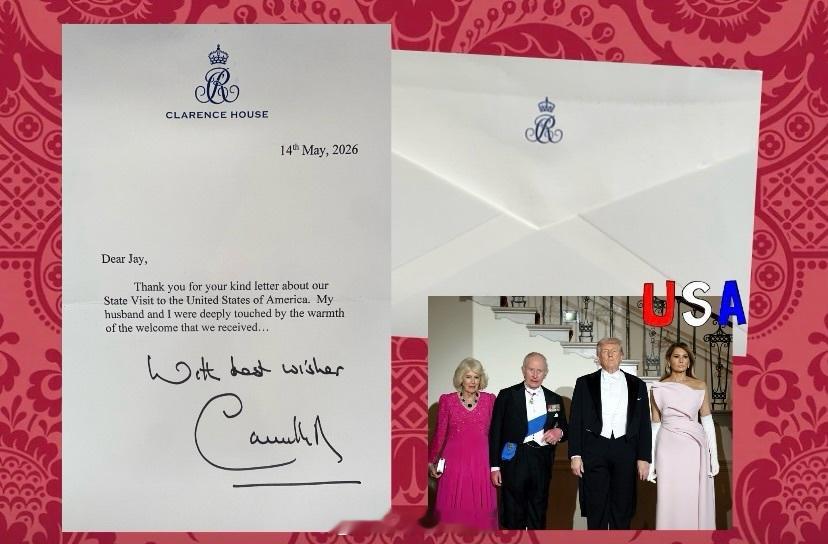 CLARENCE HOUSE
14th May, 2026
Dear Jay,
Thank you for your kind letter about our
State Visit to the United States of America. My
husband and I were deeply touched by the warmth
of the welcome that we received...
With best wishes
Camilla R
USA